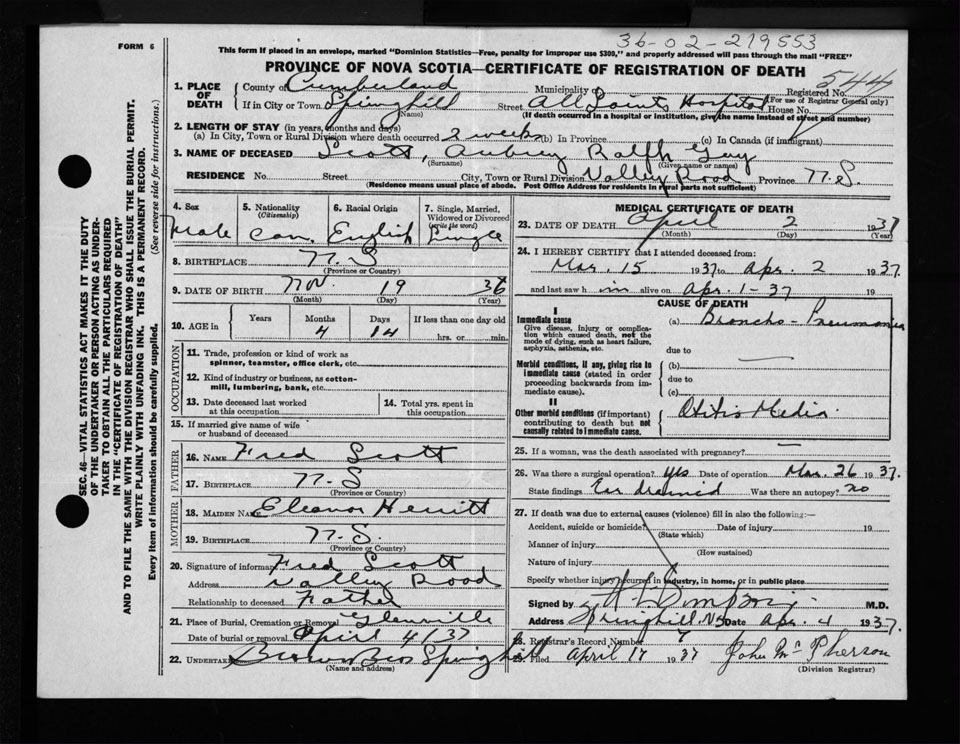 36-02-219553
FORM 6
This form if placed in an envelope, marked "Dominion Statistics—Free, penalty for improper use $300," and properly addressed will pass through the mail "FREE"
PROVINCE OF NOVA SCOTIA—CERTIFICATE OF REGISTRATION OF DEATH
544
SEC. 46—VITAL STATISTICS ACT MAKES IT THE DUTY
OF THE UNDERTAKER OR PERSON ACTING AS UNDER-
TAKER TO OBTAIN ALL THE PARTICULARS REQUIRED
IN THE "CERTIFICATE OF REGISTRATION OF DEATH"
AND TO FILE THE SAME WITH THE DIVISION REGISTRAR WHO SHALL ISSUE THE BURIAL PERMIT.
WRITE PLAINLY WITH UNFADING INK. THIS IS A PERMANENT RECORD.
Every item of information should be carefully supplied. (See reverse side for instructions.)
1. PLACE OF DEATH County of Cumberland Municipality of Registered No.
(For use of Registrar General only)
If in City or Town Springhill Street All Saints Hospital House No.
(Name) (If death occurred in a hospital or institution, give the name instead of street and number)
2. LENGTH OF STAY (in years, months and days)
(a) In City, Town or Rural Division where death occurred 2 weeks (b) In Province (c) In Canada (if immigrant)
3. NAME OF DECEASED Scott, Aubrey Ralph Gay
(Surname) (Given name or names)
RESIDENCE No. Street City, Town or Rural Division Valley Road Province N.S.
(Residence means usual place of abode. Post Office Address for residents in rural parts not sufficient)
4. Sex 5. Nationality (Citizenship) 6. Racial Origin 7. Single, Married, Widowed or Divorced (write the word)
Male Can. English Single
8. BIRTHPLACE N.S
(Province or Country)
9. DATE OF BIRTH Nov. 19 36
(Month) (Day) (Year)
10. AGE in Years Months Days If less than one day old
4 14 hrs. or min.
OCCUPATION
11. Trade, profession or kind of work as
spinner, teamster, office clerk, etc.
12. Kind of industry or business, as cotton-
mill, lumbering, bank, etc.
13. Date deceased last worked
at this occupation
14. Total yrs. spent in
this occupation
15. If married give name of wife
or husband of deceased
FATHER
16. NAME Fred Scott
17. BIRTHPLACE N.S
(Province or Country)
MOTHER
18. MAIDEN NAME Eleanor
19. BIRTHPLACE N.S.
(Province or Country)
20. Signature of informant Fred Scott
Address Valley Road
Relationship to deceased Father
21. Place of Burial, Cremation or Removal Glenville
Date of burial or removal April 4/37
22. UNDERTAKER Brown Bros Springhill
(Name and address)
MEDICAL CERTIFICATE OF DEATH
23. DATE OF DEATH April 2 1937
(Month) (Day) (Year)
24. I HEREBY CERTIFY that I attended deceased from:
Mar. 15 1937 to Apr. 2 1937.
and last saw h im alive on Apr. 1-37 19
CAUSE OF DEATH
I
Immediate cause
Give disease, injury or complica-
tion which caused death, not the
mode of dying, such as heart failure,
asphyxia, asthenia, etc.
(a) Broncho-Pneumonia
due to
Morbid conditions, if any, giving rise to
immediate cause (stated in order
proceeding backwards from im-
mediate cause).
(b)
due to
(c)
II
Other morbid conditions (if important)
contributing to death but not
causally related to immediate cause.
Otitis Media.
25. If a woman, was the death associated with pregnancy? —
26. Was there a surgical operation? yes Date of operation Mar. 26 1937.
State findings Ear drained Was there an autopsy? no
27. If death was due to external causes (violence) fill in also the following:—
Accident, suicide or homicide? Date of injury 19
(State which)
Manner of injury
(How sustained)
Nature of injury
Specify whether injury occurred in industry, in home, or in public place
Signed by Simpson M.D.
Address Springhill, NS Date Apr. 4 1937.
28. Registrar's Record Number 7
29. Filed April 17 1937 John McPherson
(Division Registrar)